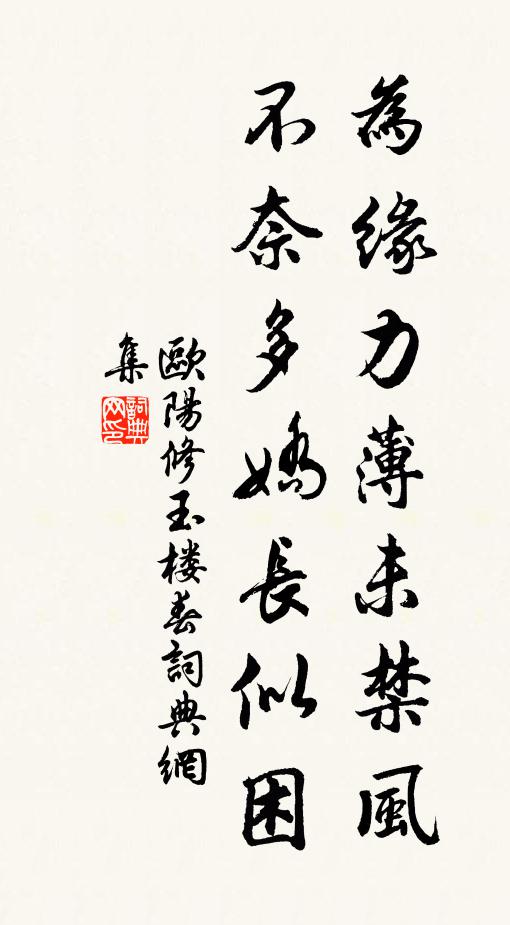 為緣力薄未禁風
不奈多嬌長似困
歐陽修玉楼春詞典網
集
詞典网印